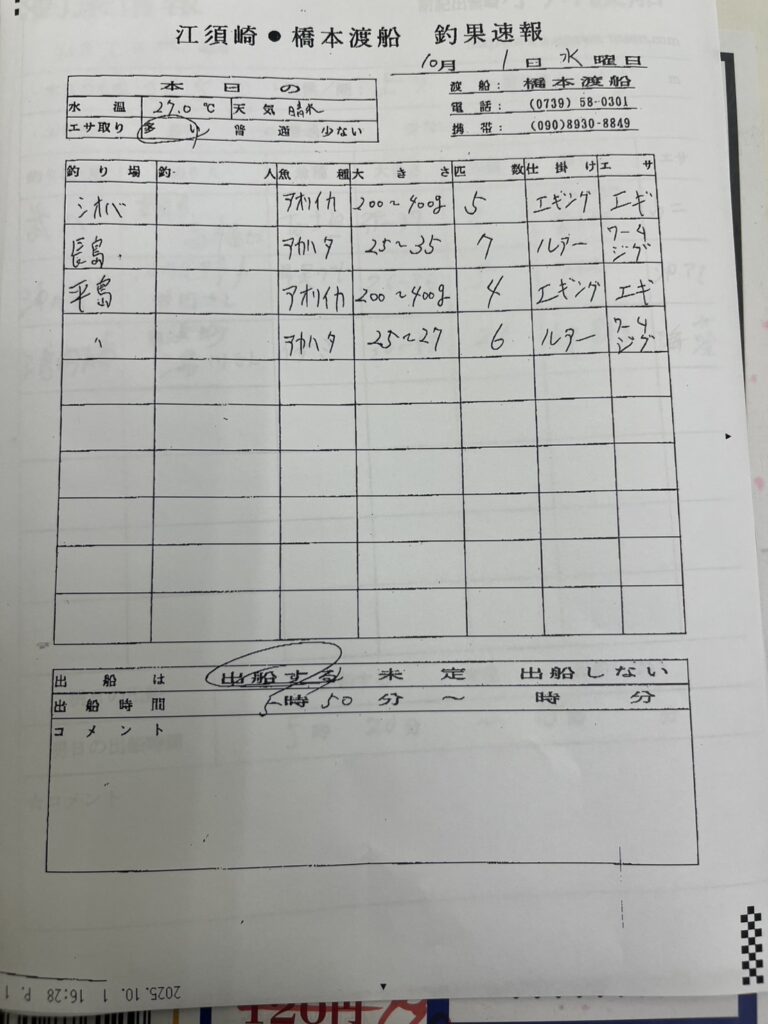 江須崎●橋本渡船 釣果速報
10月 1日 水曜日
本日の
水温 27.0℃ 天気 晴れ
エサ取り 多い 普通 少ない
渡船: 橋本渡船
電話: (0739) 58-0301
携帯: (090)8930-8849
釣り場 釣人 魚種 大きさ 匹数 仕掛け エサ
シオバ アオリイカ 200～400g 5 エギング エギ
長島 アカハタ 25～35 7 ルアー ワーム ジグ
平島 アオリイカ 200～400g 4 エギング エギ
〃 アカハタ 25～27 6 ルアー ワーム ジグ
出船は 出船する 未定 出船しない
出船時間 5時50分～ 時 分
コメント
2025.10.1 16:28 P.1